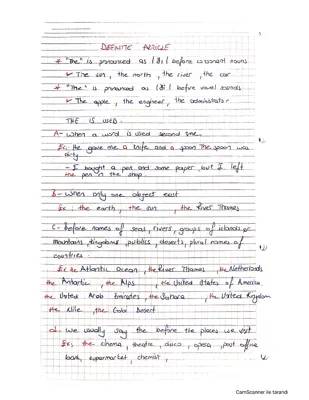 DEFINITE ARTICLE
* "The" is pronounced as |ðı| before consonant sounds
✓ The sun, the north, the river, the car
* "The" is pronounced as |ði| before vowel sounds
✓ The apple, the engineer, the administrator
THE IS USED
A- When a word is used second time.
Ex: He gave me a knife and a spoon The spoon was
dirty
- I bought a pen and some paper, but I left
the pen in the shop.
B- When only one object exist
Ex: the earth, the sun, the River Thames
C- Before names of seas, rivers, groups of islands or
mountains, kingdoms, publics, deserts, plural names of
countries.
Ex: the Atlantic Ocean, the River Thames, the Netherlands
the Antarctic, the Alps, the United States of America
the United Arab Emirates, the Sahara, the United Kingdom
the Nile, the Gobi Desert
d. We usually say the before the places we visit
Ex: the cinema, theatre, disco, opera, post office
bank, supermarket, chemist,
CamScanner ile tarandı